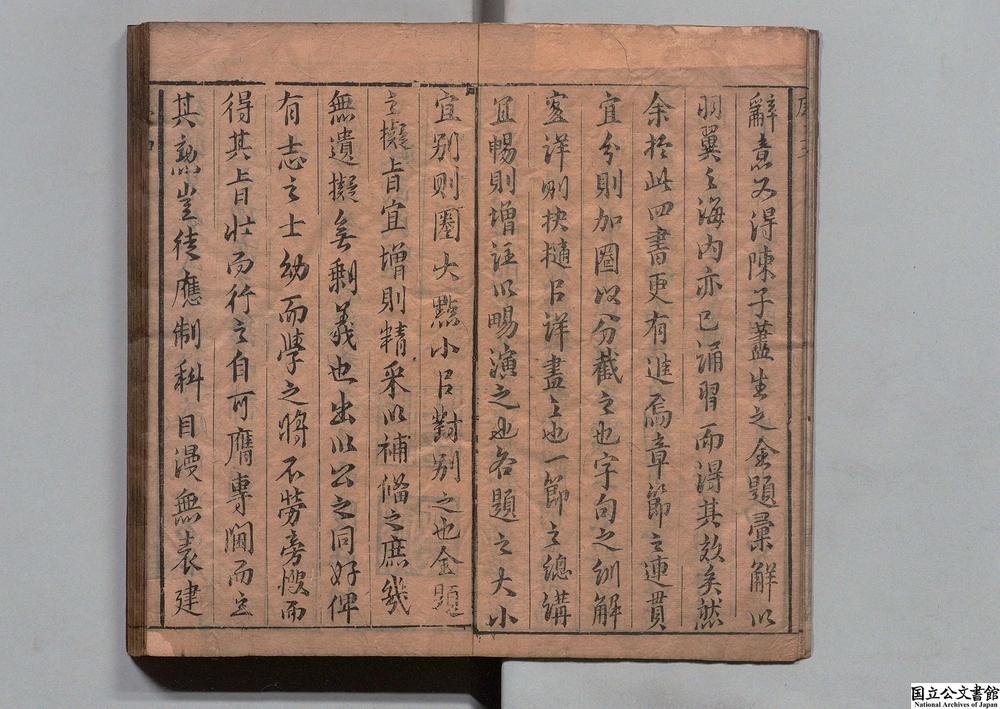 辭意又得陳子藎生之全題彙解以
羽翼之海内亦已誦習而得其效矣然
余於此四書更有進焉章節之連貫
宜分則加圈以分截之也字句之訓解
宜詳則抉髓以詳盡之也一節之總講
宜暢則增註以暢演之也各題之大小
宜別則圈大點小以對別之也全題
之擬旨宜增則精采以補俻之庶幾
無遺擬無剩義也出以公之同好俾
有志之士幼而學之將不勞旁搜而
得其旨壯而行之自可膺專閫而立
其勲豈徒應制科目漫無表建
国立公文書館
National Archives of Japan